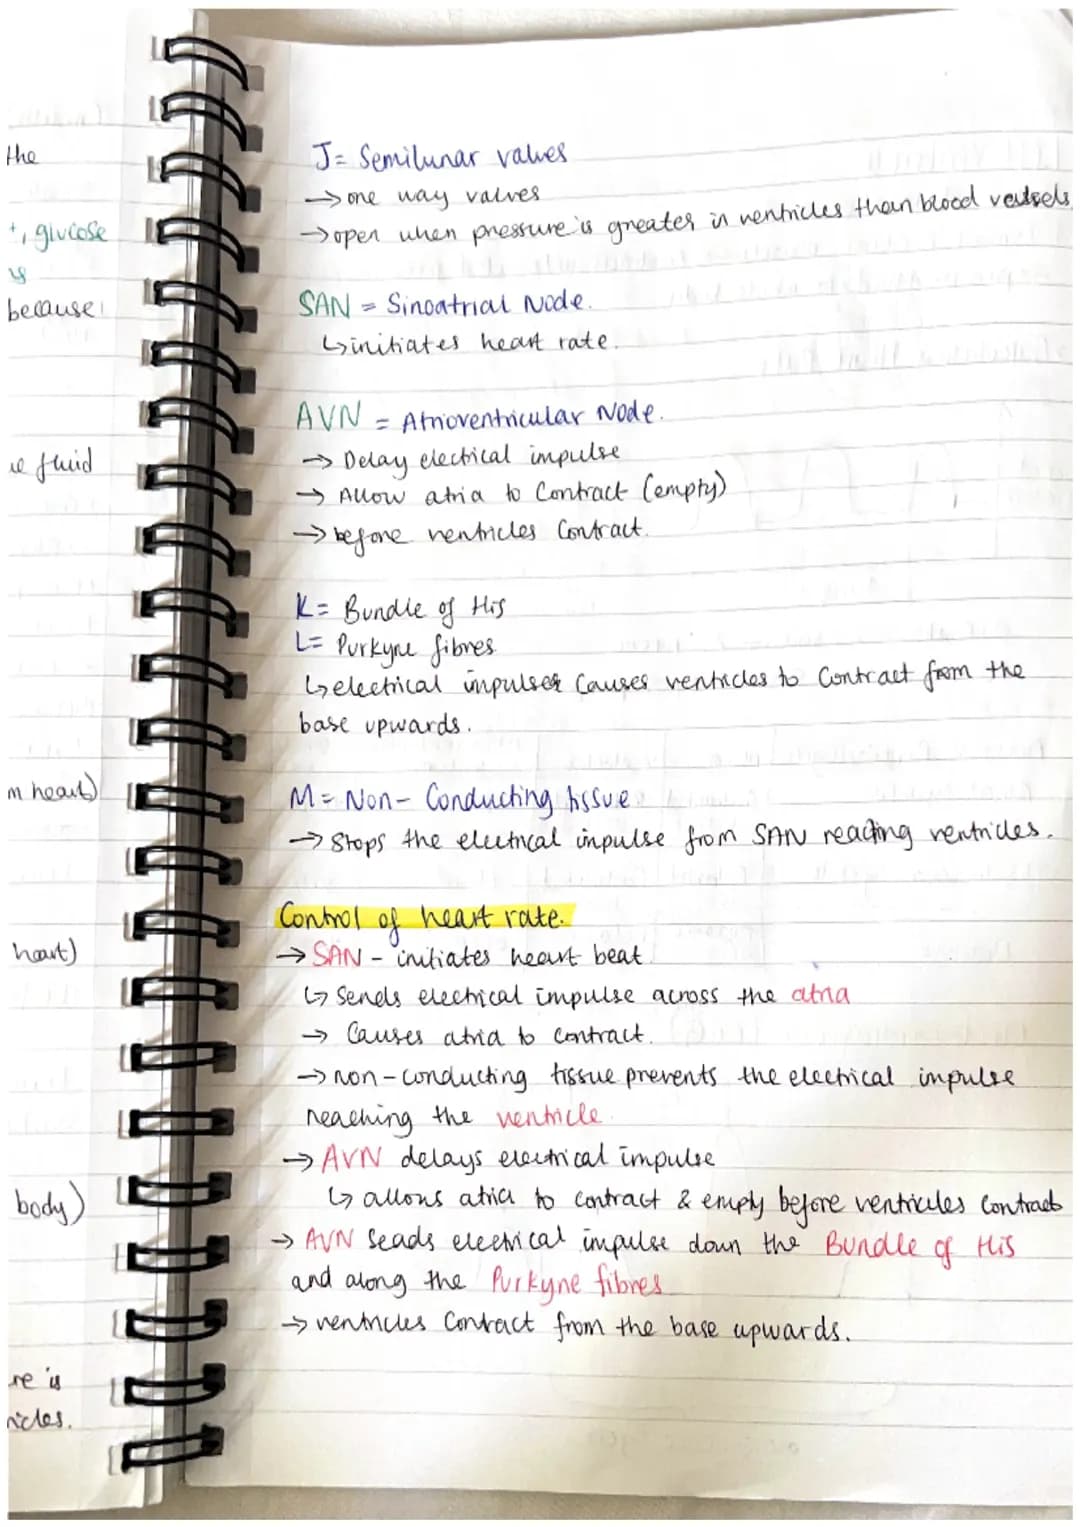 the
+, glucose
ys
because
ve fluid
m heart)
heart)
body)
re is
ricles.
J= Semilunar valves
→ one way valves
→ open when pressure is greater in ventricles than blood vessels
SAN = Sinoatrial Node.
↳ initiates heart rate.
AVN = Atrioventricular Node.
→ Delay electrical impulse
→ Allow atria to Contract (empty)
→ before ventricles Contract.
K= Bundle of His
L= Purkyne fibres
↳ electrical impulses Causes ventricles to Contract from the
base upwards.
M= Non- Conducting tissue
→ Stops the electrical impulse from SAN reacting ventricles.
Control of heart rate.
→ SAN - initiates heart beat
↳ Sends electrical impulse across the atria
→ Causes atria to contract.
→ non-conducting tissue prevents the electrical impulse
reaching the ventricle.
→ AVN delays electrical impulse
↳ allows atria to contract & empty before ventricules contract
→ AVN Seads electrical impulse down the Bundle of His
and along the Purkyne fibres
→ ventricles Contract from the base upwards.